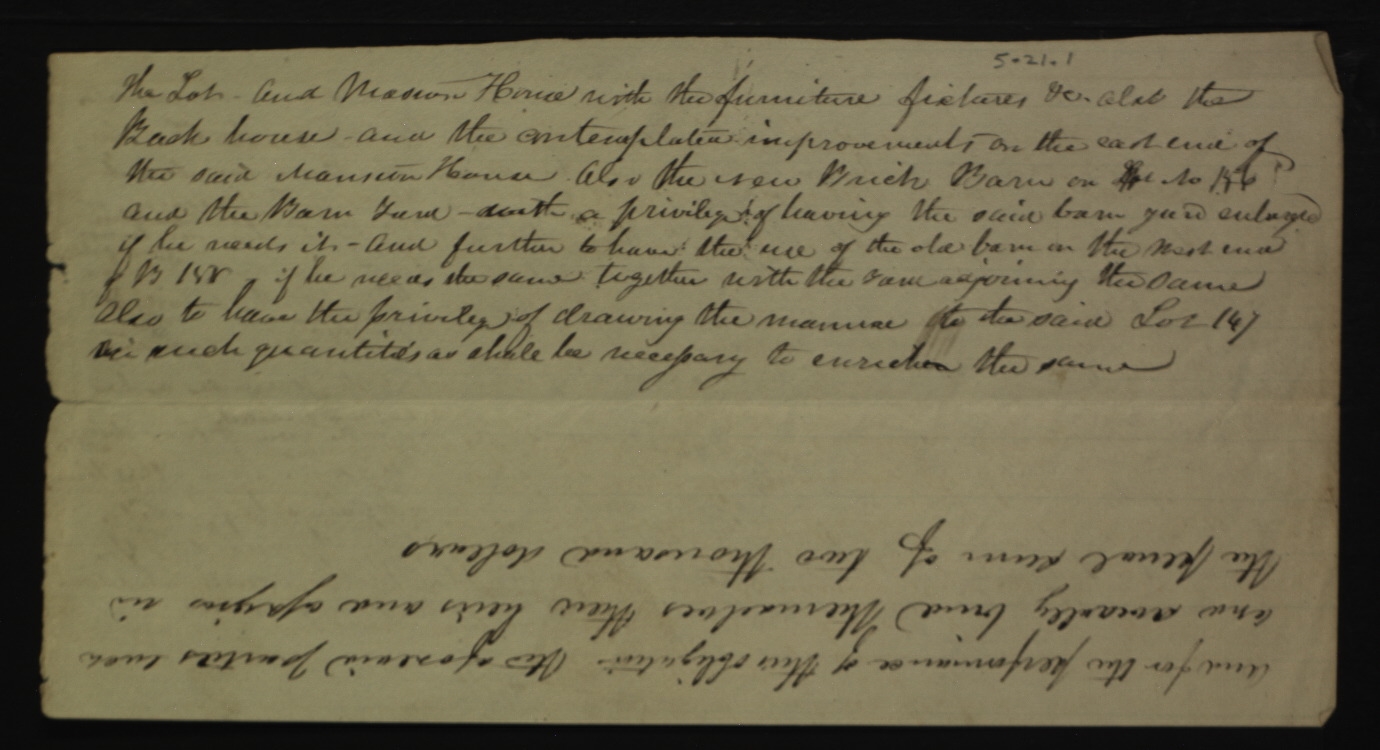 5.21.1
the Lot - and Mansion House with the furniture fixtures &c. also the
Back house - and the contemplated improvements on the east end of
the said Mansion House also the new Brick Barn on No 158
and the Barn Yard - with a privilege of having the said barn yard enlarged
if he needs it - and further to have the use of the old barn on the West end
of B 158 if he needs the same together with the Yard adjoining the same
also to have the privilege of drawing the manure to the said Lot 147
in such quantities as shall be necessary to enrichen the same
and for the performance of this obligation the aforesaid parties each
and severally bind themselves their heirs and assigns in
the penal sum of two thousand dollars